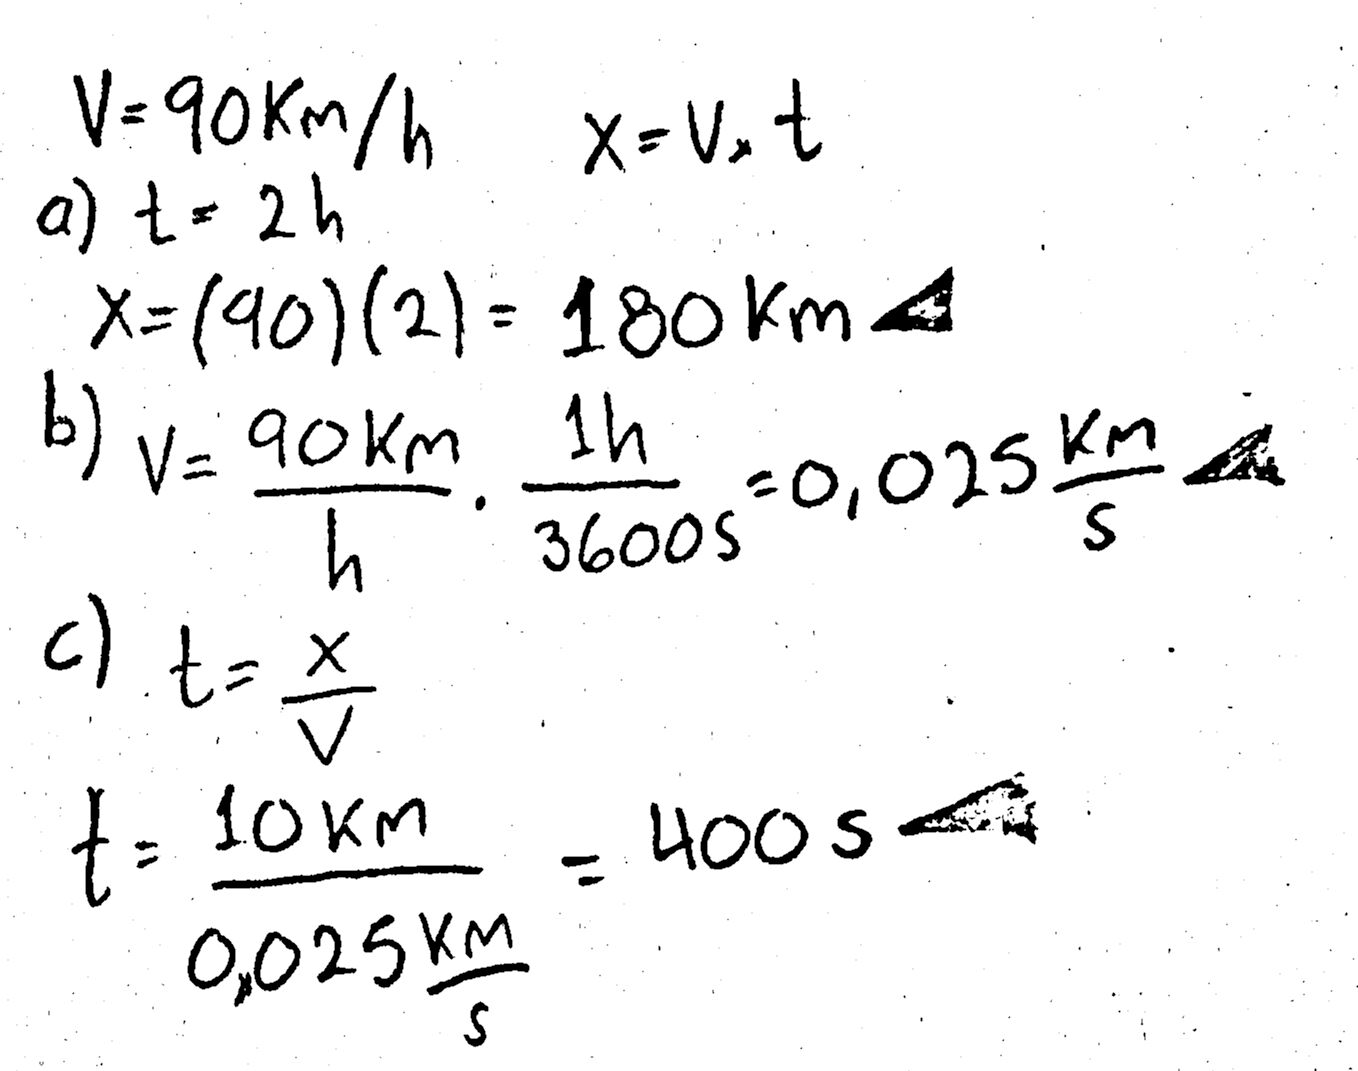 V=90Km/h X=V.t
a) t= 2h
X=(90)(2)= 180 Km
b) V= 90Km/h . 1h/3600s =0,025 Km/s
c) t= x/V
t= 10 Km / 0,025 Km/s = 400 s